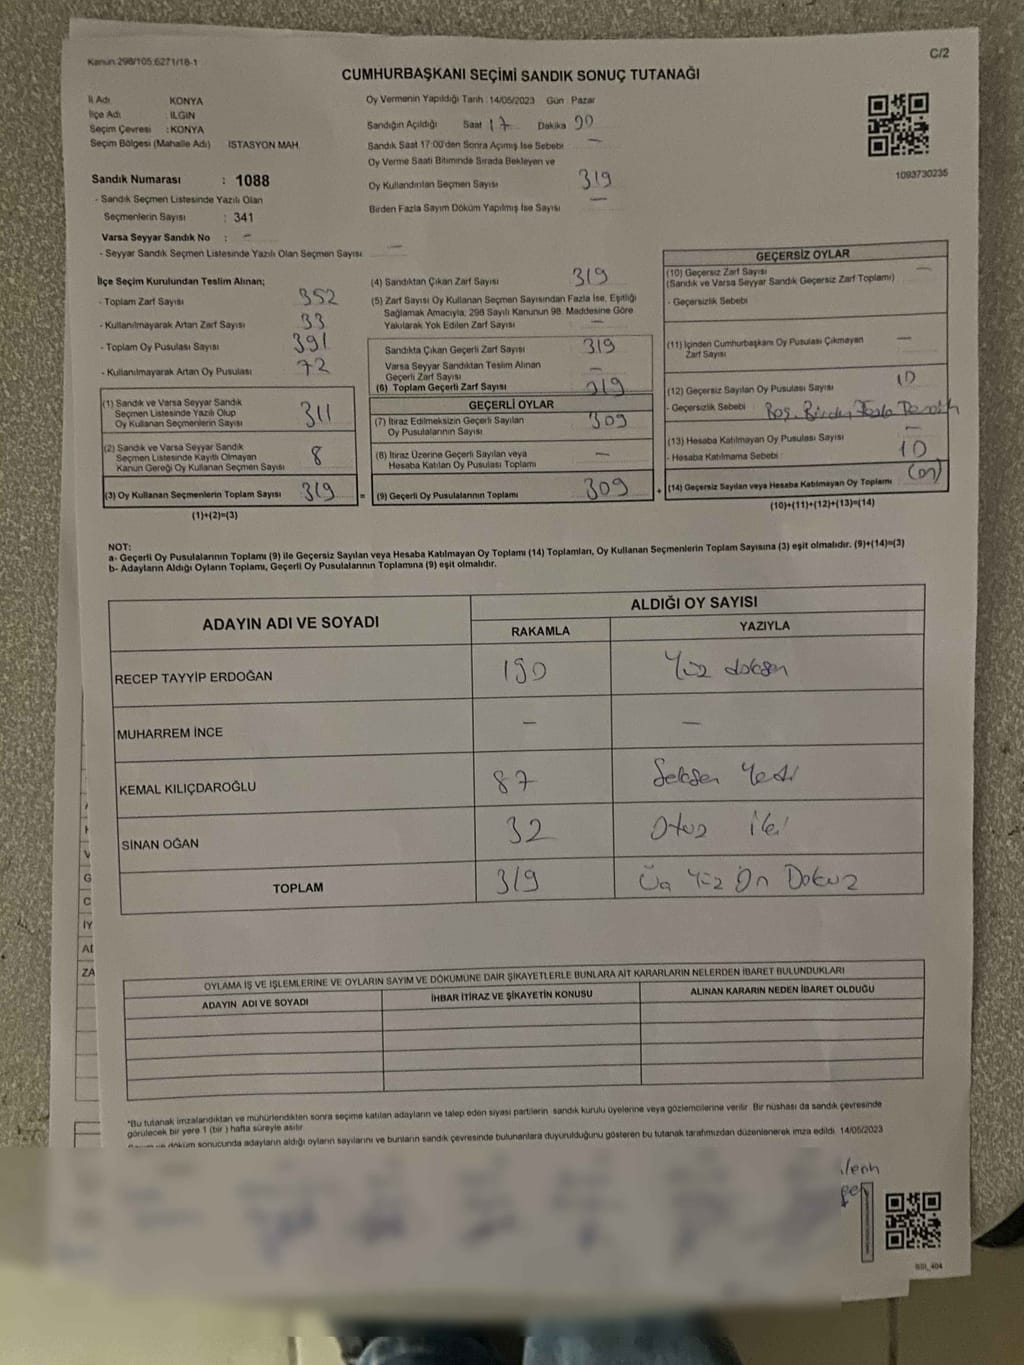 Kanun:298/105,6271/18-1
C/2
CUMHURBAŞKANI SEÇİMİ SANDIK SONUÇ TUTANAĞI
İl Adı KONYA
İlçe Adı ILGIN
Seçim Çevresi : KONYA
Seçim Bölgesi (Mahalle Adı) İSTASYON MAH.
Sandık Numarası : 1088
- Sandık Seçmen Listesinde Yazılı Olan
Seçmenlerin Sayısı : 341
Varsa Seyyar Sandık No : -
- Seyyar Sandık Seçmen Listesinde Yazılı Olan Seçmen Sayısı —
Oy Vermenin Yapıldığı Tarih : 14/05/2023 Gün : Pazar
Sandığın Açıldığı Saat 17 Dakika 00
Sandık Saat 17:00'den Sonra Açımış İse Sebebi —
Oy Verme Saati Bitiminde Sırada Bekleyen ve
Oy Kullandırılan Seçmen Sayısı 319
Birden Fazla Sayım Döküm Yapılmış İse Sayısı —
1093730235
İlçe Seçim Kurulundan Teslim Alınan;
- Toplam Zarf Sayısı 352
- Kullanılmayarak Artan Zarf Sayısı 33
- Toplam Oy Pusulası Sayısı 391
- Kullanılmayarak Artan Oy Pusulası 72
(1) Sandık ve Varsa Seyyar Sandık
Seçmen Listesinde Yazılı Olup
Oy Kullanan Seçmenlerin Sayısı 311
(2) Sandık ve Varsa Seyyar Sandık
Seçmen Listesinde Kayıtlı Olmayan
Kanun Gereği Oy Kullanan Seçmen Sayısı 8
(3) Oy Kullanan Seçmenlerin Toplam Sayısı 319 =
(1)+(2)=(3)
(4) Sandıktan Çıkan Zarf Sayısı 319
(5) Zarf Sayısı Oy Kullanan Seçmen Sayısından Fazla İse, Eşitliği
Sağlamak Amacıyla, 298 Sayılı Kanunun 98. Maddesine Göre
Yakılarak Yok Edilen Zarf Sayısı —
Sandıkta Çıkan Geçerli Zarf Sayısı 319
Varsa Seyyar Sandıktan Teslim Alınan
Geçerli Zarf Sayısı —
(6) Toplam Geçerli Zarf Sayısı 319
GEÇERLİ OYLAR
(7) İtiraz Edilmeksizin Geçerli Sayılan
Oy Pusulalarının Sayısı 309
(8) İtiraz Üzerine Geçerli Sayılan veya
Hesaba Katılan Oy Pusulası Toplamı —
(9) Geçerli Oy Pusulalarının Toplamı 309 +
GEÇERSİZ OYLAR
(10) Geçersiz Zarf Sayısı —
(Sandık ve Varsa Seyyar Sandık Geçersiz Zarf Toplamı)
- Geçersizlik Sebebi
(11) İçinden Cumhurbaşkanı Oy Pusulası Çıkmayan
Zarf Sayısı —
(12) Geçersiz Sayılan Oy Pusulası Sayısı 10
- Geçersizlik Sebebi Boş, Birden Fazla
(13) Hesaba Katılmayan Oy Pusulası Sayısı —
- Hesaba Katılmama Sebebi 10
(14) Geçersiz Sayılan veya Hesaba Katılmayan Oy Toplamı (on)
(10)+(11)+(12)+(13)=(14)
NOT:
a- Geçerli Oy Pusulalarının Toplamı (9) ile Geçersiz Sayılan veya Hesaba Katılmayan Oy Toplamı (14) Toplamları, Oy Kullanan Seçmenlerin Toplam Sayısına (3) eşit olmalıdır. (9)+(14)=(3)
b- Adayların Aldığı Oyların Toplamı, Geçerli Oy Pusulalarının Toplamına (9) eşit olmalıdır.
ADAYIN ADI VE SOYADI
ALDIĞI OY SAYISI
RAKAMLA YAZIYLA
RECEP TAYYİP ERDOĞAN 190 Yüz doksan
MUHARREM İNCE — —
KEMAL KILIÇDAROĞLU 87 Seksen Yedi
SİNAN OĞAN 32 Otuz iki
TOPLAM 319 Üç Yüz On Dokuz
OYLAMA İŞ VE İŞLEMLERİNE VE OYLARIN SAYIM VE DÖKÜMÜNE DAİR ŞİKAYETLERLE BUNLARA AİT KARARLARIN NELERDEN İBARET BULUNDUKLARI
ADAYIN ADI VE SOYADI İHBAR İTİRAZ VE ŞİKAYETİN KONUSU ALINAN KARARIN NEDEN İBARET OLDUĞU
*Bu tutanak imzalandıktan ve mühürlendikten sonra seçime katılan adayların ve talep eden siyasi partilerin sandık kurulu üyelerine veya gözlemcilerine verilir. Bir nüshası da sandık çevresinde
görülecek bir yere 1 (bir) hafta süreyle asılır.
döküm sonucunda adayların aldığı oyların sayılarını ve bunların sandık çevresinde bulunanlara duyurulduğunu gösteren bu tutanak tarafımızdan düzenlenerek imza edildi. 14/05/2023